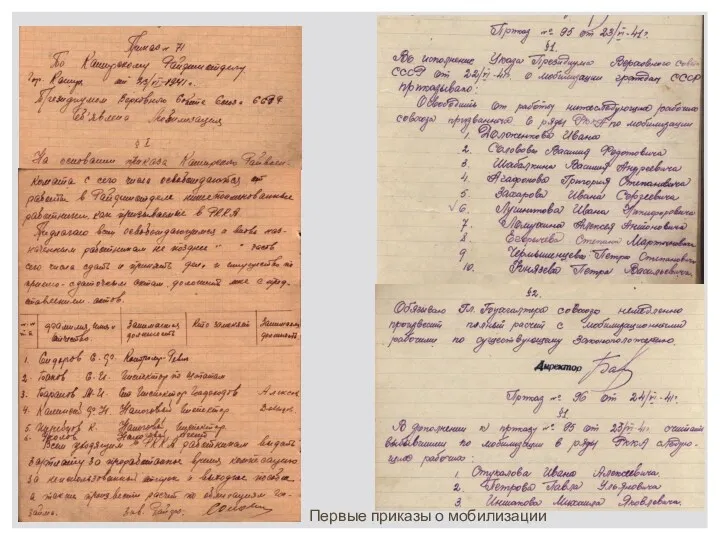 Приказ № 71
По Каширскому Райфинотделу
гор. Кашира от 23/VI-1941 г.
Президиумом Верховного Совета Союза ССР
об'явлена мобилизация
§ I
На основании приказа Каширского Райвоен-
комата с сего числа освобождаются от
работы в Райфинотделе нижепоименованные
работники как призываемые в РККА.
Предлагаю всем освобождающимся и вновь наз-
наченным работникам не позднее " " часов
сего числа сдать и принять дела и имущество по
приемо-сдаточным актам, доложить мне с пред-
ставлением актов.
фамилия, имя и отчество
Занимаемая должность
Кто замещает
Занимаемая должность
1. Сидоров С. Ф. Контролер-Рев.
2. Быков Е. И. Инспектор по штатам
3. Баранов М. И. Ст Инспектор Госдоходов Алексе
4. Ф. Н. Налоговый Инспектор
5. К. Инспектор
6. Налоговый агент
Всем уходящим в РККА работникам выдать
зарплату за проработанное время компенсацию
за неиспользованный отпуск и выходное пособие,
а также произвести расчет по облигациям Гос-
займа.
Зав. Райфо.
Приказ № 95 от 23/VI-41 г.
§1.
Во исполнение Указа Президиума Верховного Совета
СССР от 22/VI-41 о мобилизации граждан СССР
приказываю:
Освободить от работы нижеследующих рабочих
совхоза призванного в ряды РККА по мобилизации
1. Доложенкова Ивана
2. Соловова Василия Федотовича
3. Шабалкина Василия Андреевича
4. Агафонова Григория Степановича
5. Захарова Ивана Сергеевича
6. Лушникова Ивана
7. Алексея Антоновича
8. Степана Мартыновича
9. Чернышенцева Петра Степановича
10. Князева Петра Васильевича
§2.
Обязываю Гл. Бухгалтера совхоза немедленно
произвести полный расчет с мобилизационными
рабочими по существующему законоположению.
Директор
Приказ № 96 от 24/VI-41 г.
§1.
В дополнении к приказу № 95 от 23/VI-41 считать
выбывшими по мобилизации в ряды РККА следую-
щего рабочих:
1. Стукалова Ивана Алексеевича.
2. Петрова Павла Ульяновича
3. Иншакова Михаила Яковлевича.
Первые приказы о мобилизации